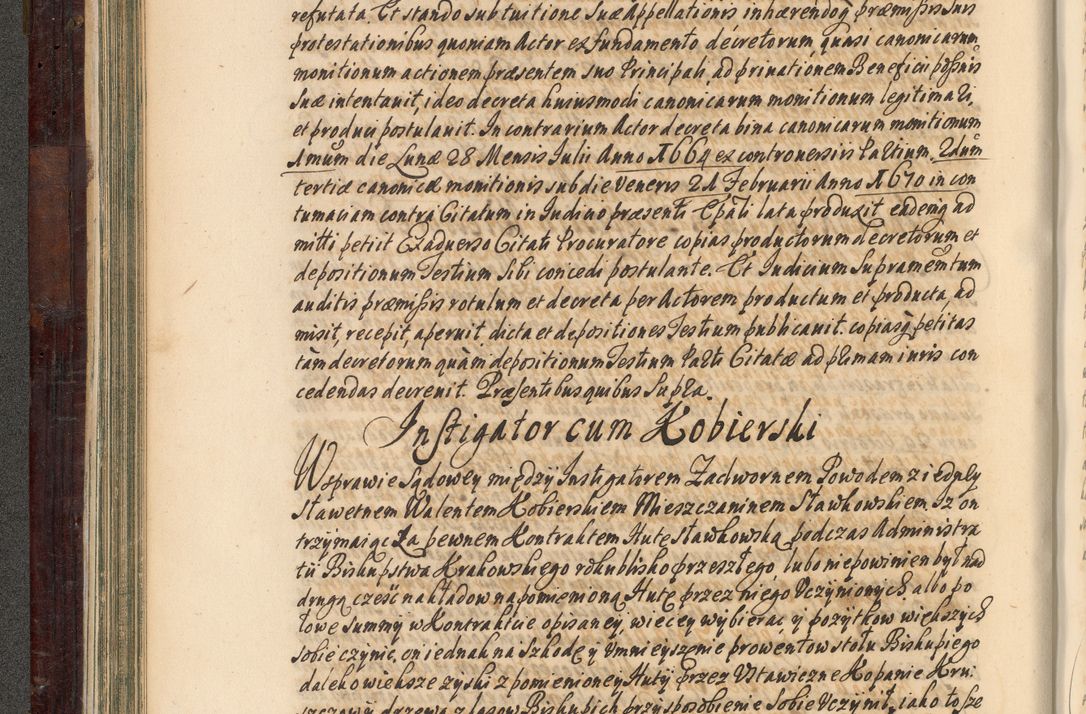 refutata. Et stando sub tuitione suæ Appellationis inhærendoq̃ præmissis suis
protestationibus quoniam Actor ex fundamento decretorum quasi canonicarum
monitionum actionem præsentem suo Principali ad privationem Beneficii possnis
suæ intentavit, ideo decreta huiusmodi canonicarum monitionum legitima
et produci postulavit. In contrarium Actor decreta bina canonicarum monitionum
1mum die Lunæ 28 Mensis Iulii Anno 1669 ex controversiis Partium. 2dum
tertiæ canonicæ monitionis sub die Veneris 21 Februarii Anno 1670 in con
tumaciam contra Citatum in Iudicio præsenti Epāli lata produxit eademq̃ ad
mitti petiit Ex adverso Citati Procuratore copias productorum decretorum et
depositionum Testium sibi concedi postulante. Et Iudicium supramentum
auditis præmissis rotulum et decreta per Actorem productum et producta, ad
misit, recepit, aperuit, dicta et depositiones Testium publicavit. copiasq̃ petitas
tàm decretorum quàm depositionum Testium Parti Citatæ ad primam iuris con
cedendas decrevit. Præsentibus quibus supra.
Instigator cum Kobierski
W sprawie sądowey między Instigatorem Zadwornem Powodem z iedney
Sławetnem Walentem Kobierskiem Mieszczaninem Sławkowskiem Iz on
trzymaiąc Za pewnem Kontraktem Hute Sławkowską podczas Administra
tii Biskupstwa Krakowskiego roku blisko przeszłego, lubo niepowinien był nad
drugą cześć nakładow na pomienioną Hutę przez niego Uczynionych, albo po
łowe summy w Kontrakcie opisaney, wiecey wybierac y pozytkow większych
sobie czynic, on iednak na Szkodę y Umnieyszenie prowentow stołu Biskupiego
daleko większe zyski z pomienioney Huty przez Ustawiczne Kopanie Kru:
szczowy drzewa z lasow Biskupich przysposobienie sobie Uczynił, iako to sze